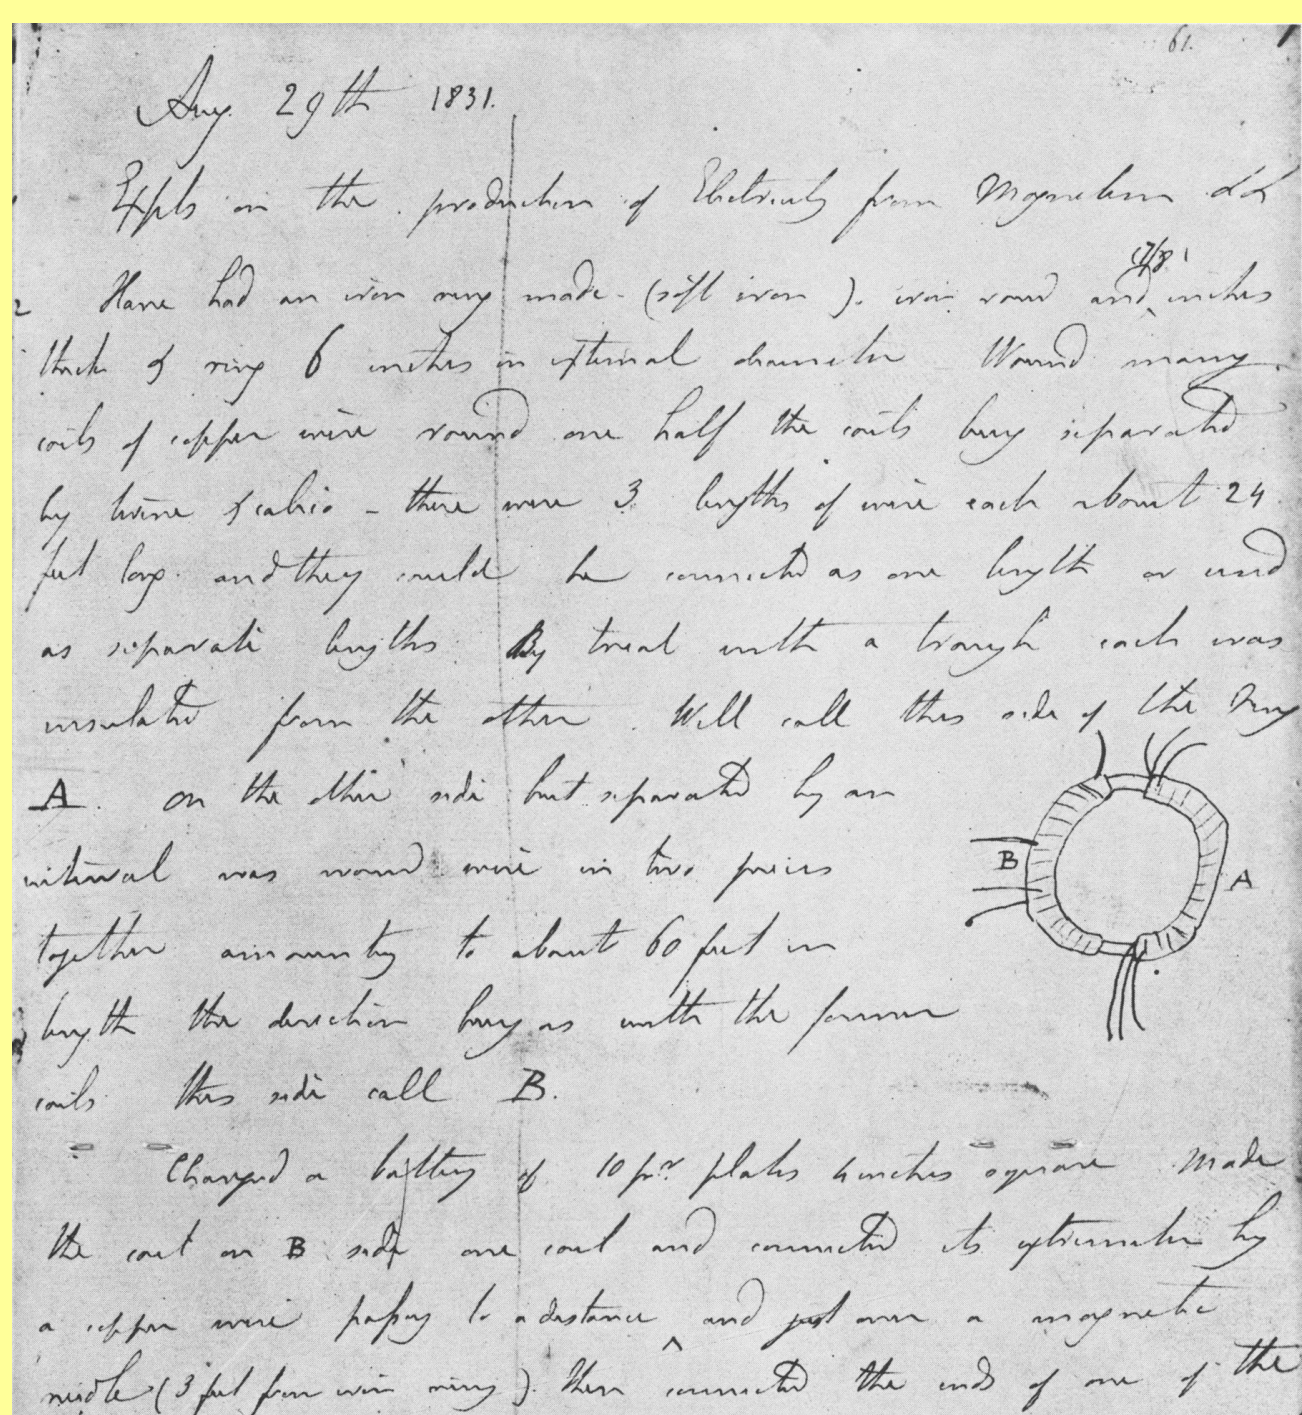 61.
Aug 29th 1831.
Expts on the production of Electricity from Magnetism &c &c
7/8
2 Have had an iron ring made (soft iron). iron round and inches
thick & ring 6 inches in external diameter Wound many
coils of copper wire round one half the coils being separated
by twine & calico - there were 3 lengths of wire each about 24
feet long and they could be connected as one length or used
as separate lengths. By trial with a trough each was
insulated from the other. Will call this side of the ring
A. on the other side but separated by an
interval was wound wire in two pieces
together amounting to about 60 feet in
length the direction being as with the former
coils this side call B.
B
A
Charged a battery of 10 pr. plates 4 inches square Made
the coil on B side one coil and connected its extremities by
a copper wire passing to a distance and just over a magnetic
needle (3 feet from iron ring). then connected the ends of one of the